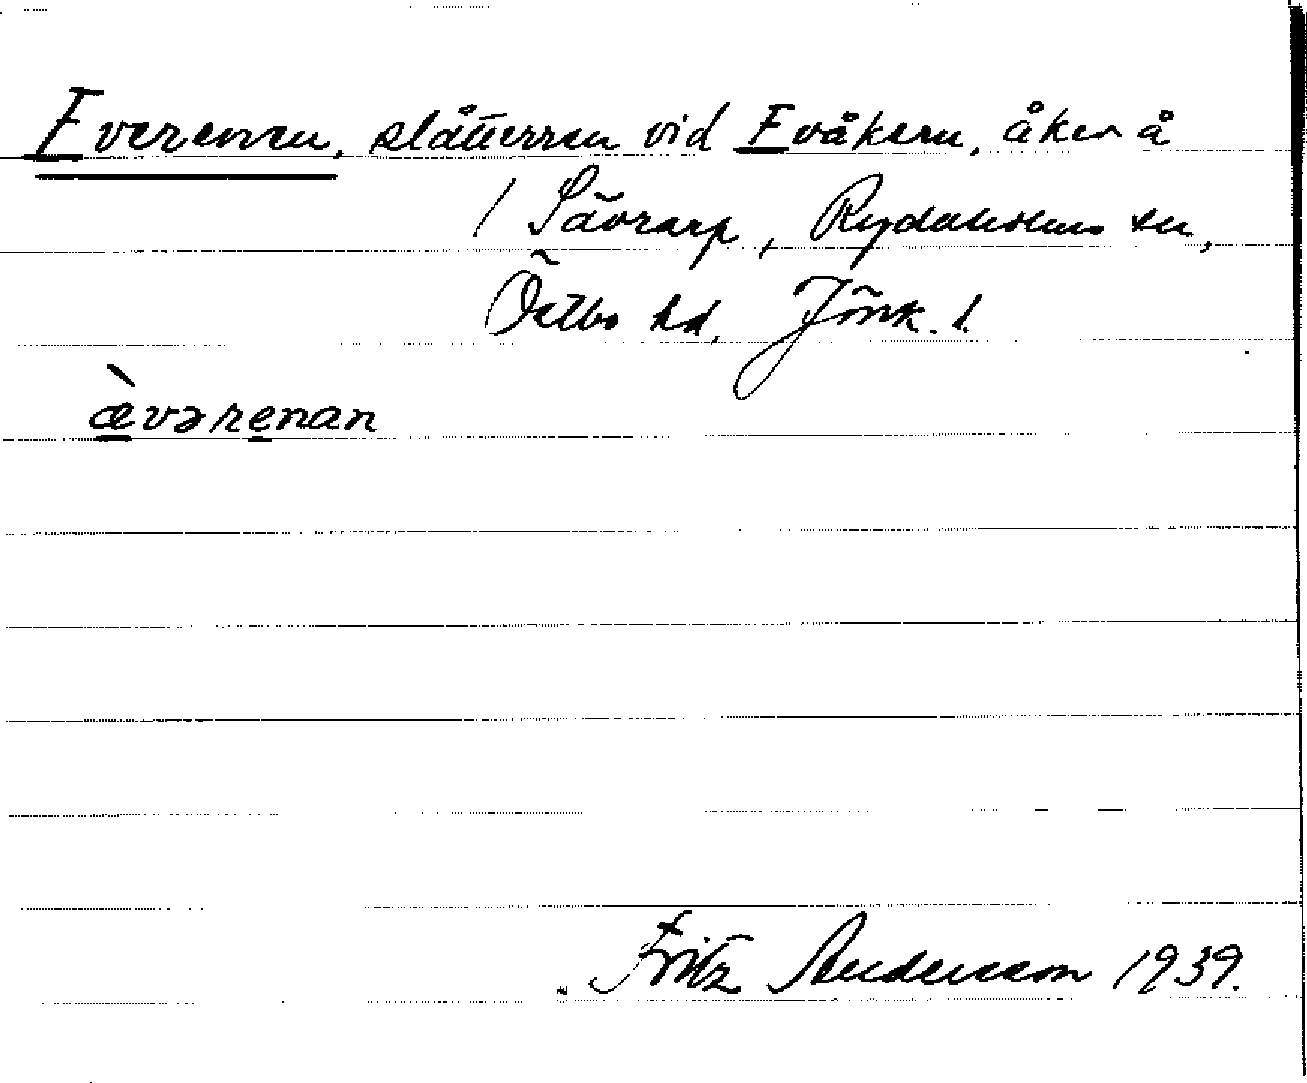 Everenen, slåtterren vid Evåkern, åker å
/ Sävrarp, Rydaholms sn,
Östbo hd, Jönk. l.
æ̀vərenan
Fritz Andersson 1939.